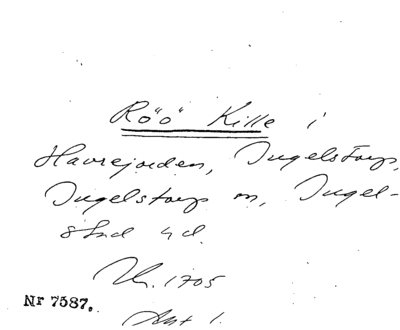 Röö Kille i
Havrejorden, Ingelstorp,
Ingelstorps sn, Ingel-
stad hd.
1705
Nr 7587.